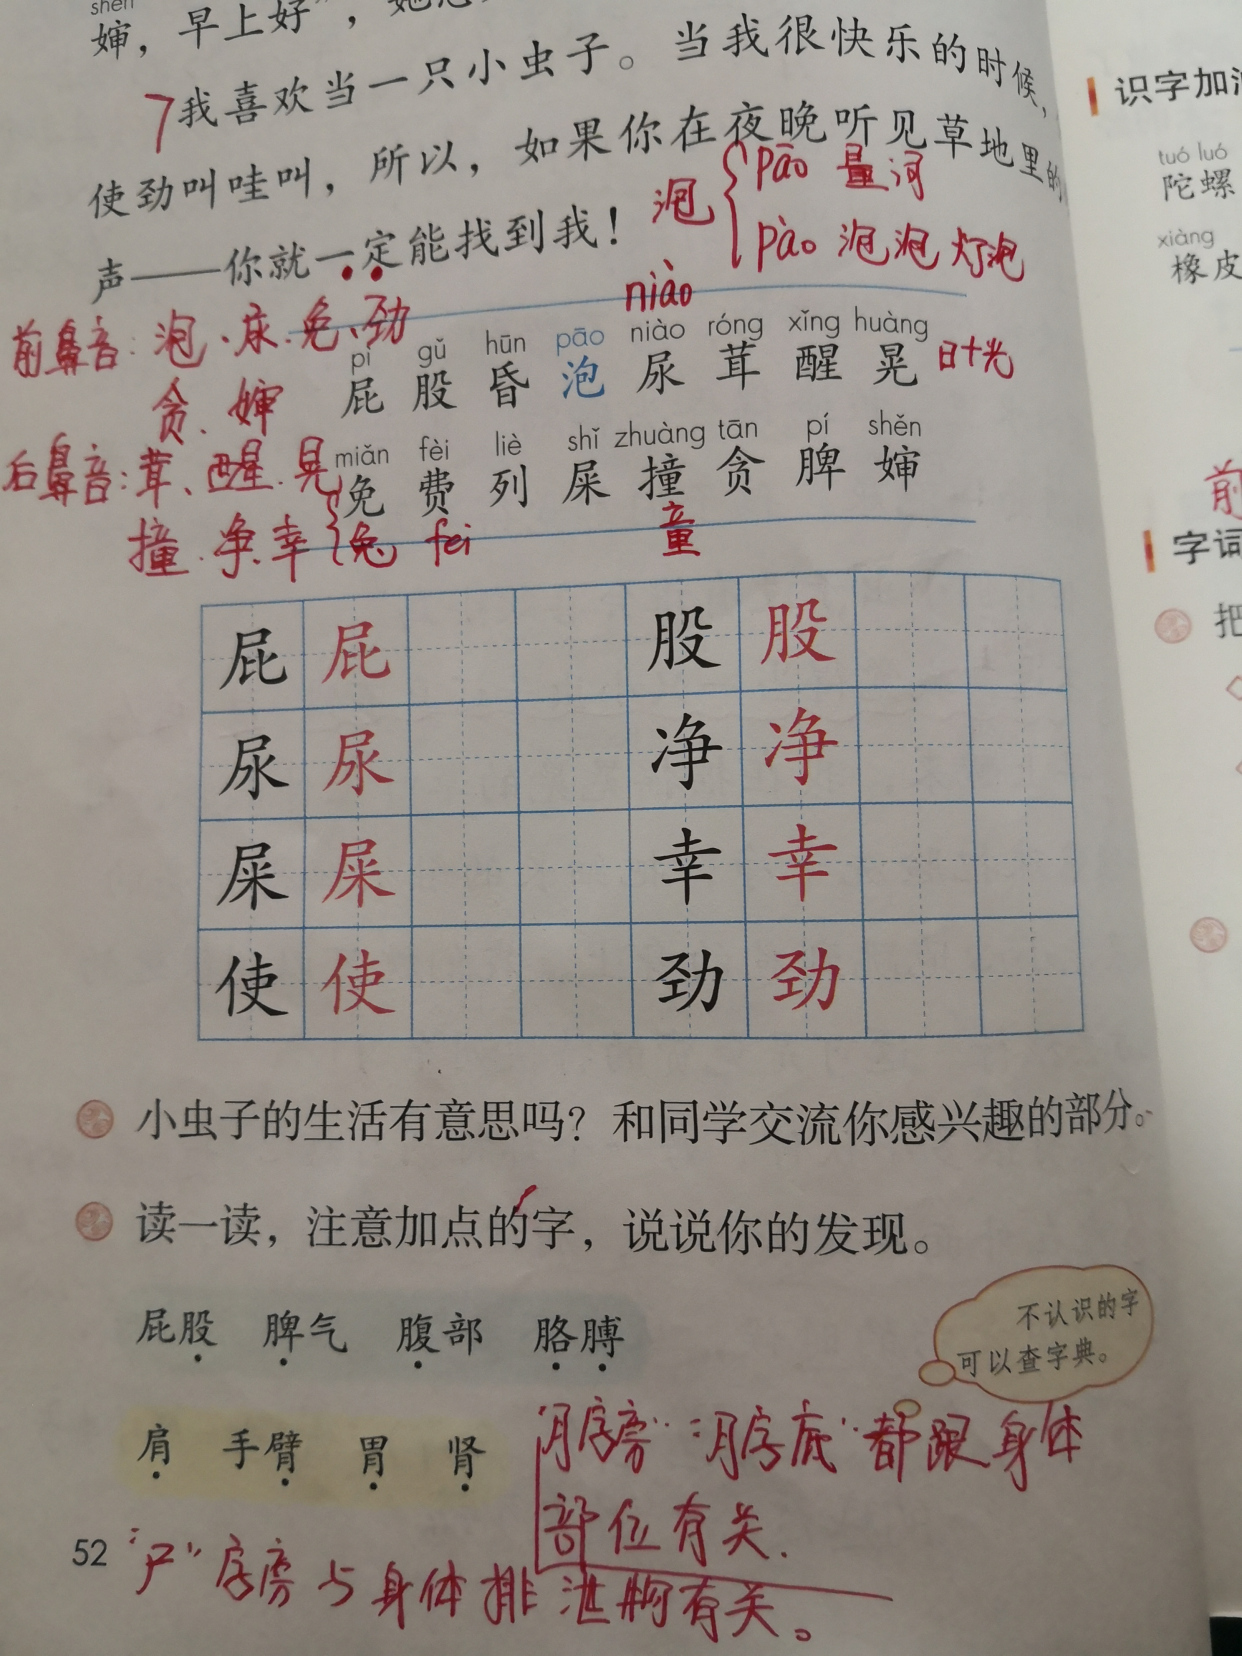 shěn
婶，早上好”，她总
7我喜欢当一只小虫子。当我很快乐的时候，
使劲叫哇叫，所以，如果你在夜晚听见草地里的
声——你就一定能找到我！
泡 pāo 量词
pào 泡泡 灯泡
niào
前鼻音：泡、尿、免、劲
贪、婶
后鼻音：茸、醒、晃
撞、净、幸
pì gǔ hūn pāo niào róng xǐng huàng
屁 股 昏 泡 尿 茸 醒 晃
日+光
miǎn fèi liè shǐ zhuàng tān pí shěn
免 费 列 屎 撞 贪 脾 婶
兔 fei 童
屁 屁 股 股
尿 尿 净 净
屎 屎 幸 幸
使 使 劲 劲
小虫子的生活有意思吗？和同学交流你感兴趣的部分。
读一读，注意加点的字，说说你的发现。
屁股 脾气 腹部 胳膊
不认识的字
可以查字典。
肩 手臂 胃 肾
“月字旁”“月字底”都跟身体
部位有关.
52
“尸”字旁与身体排泄物有关。
识字加油
tuó luó
陀螺
xiàng
橡皮
前
字词
把